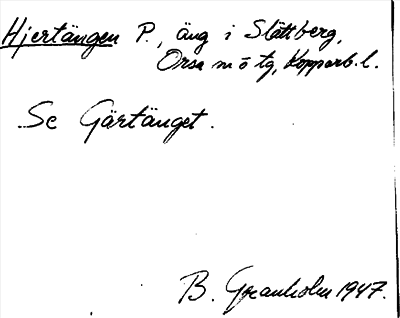 Hjertängen P., äng i Slättberg,
Orsa m o tg, Kopparb. l.
Se Gärtänget.
B. Granholm 1947.